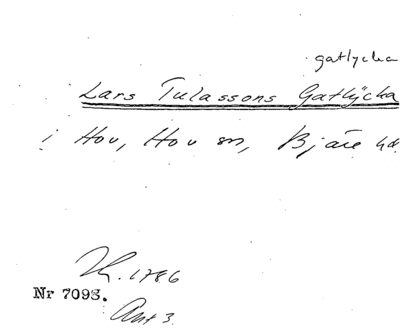 gatlycka
Lars Tulassons Gatlÿcka
i Hov, Hov sn, Bjäre hd.
Lh. 1786
Nr 7098.
Akt 3.